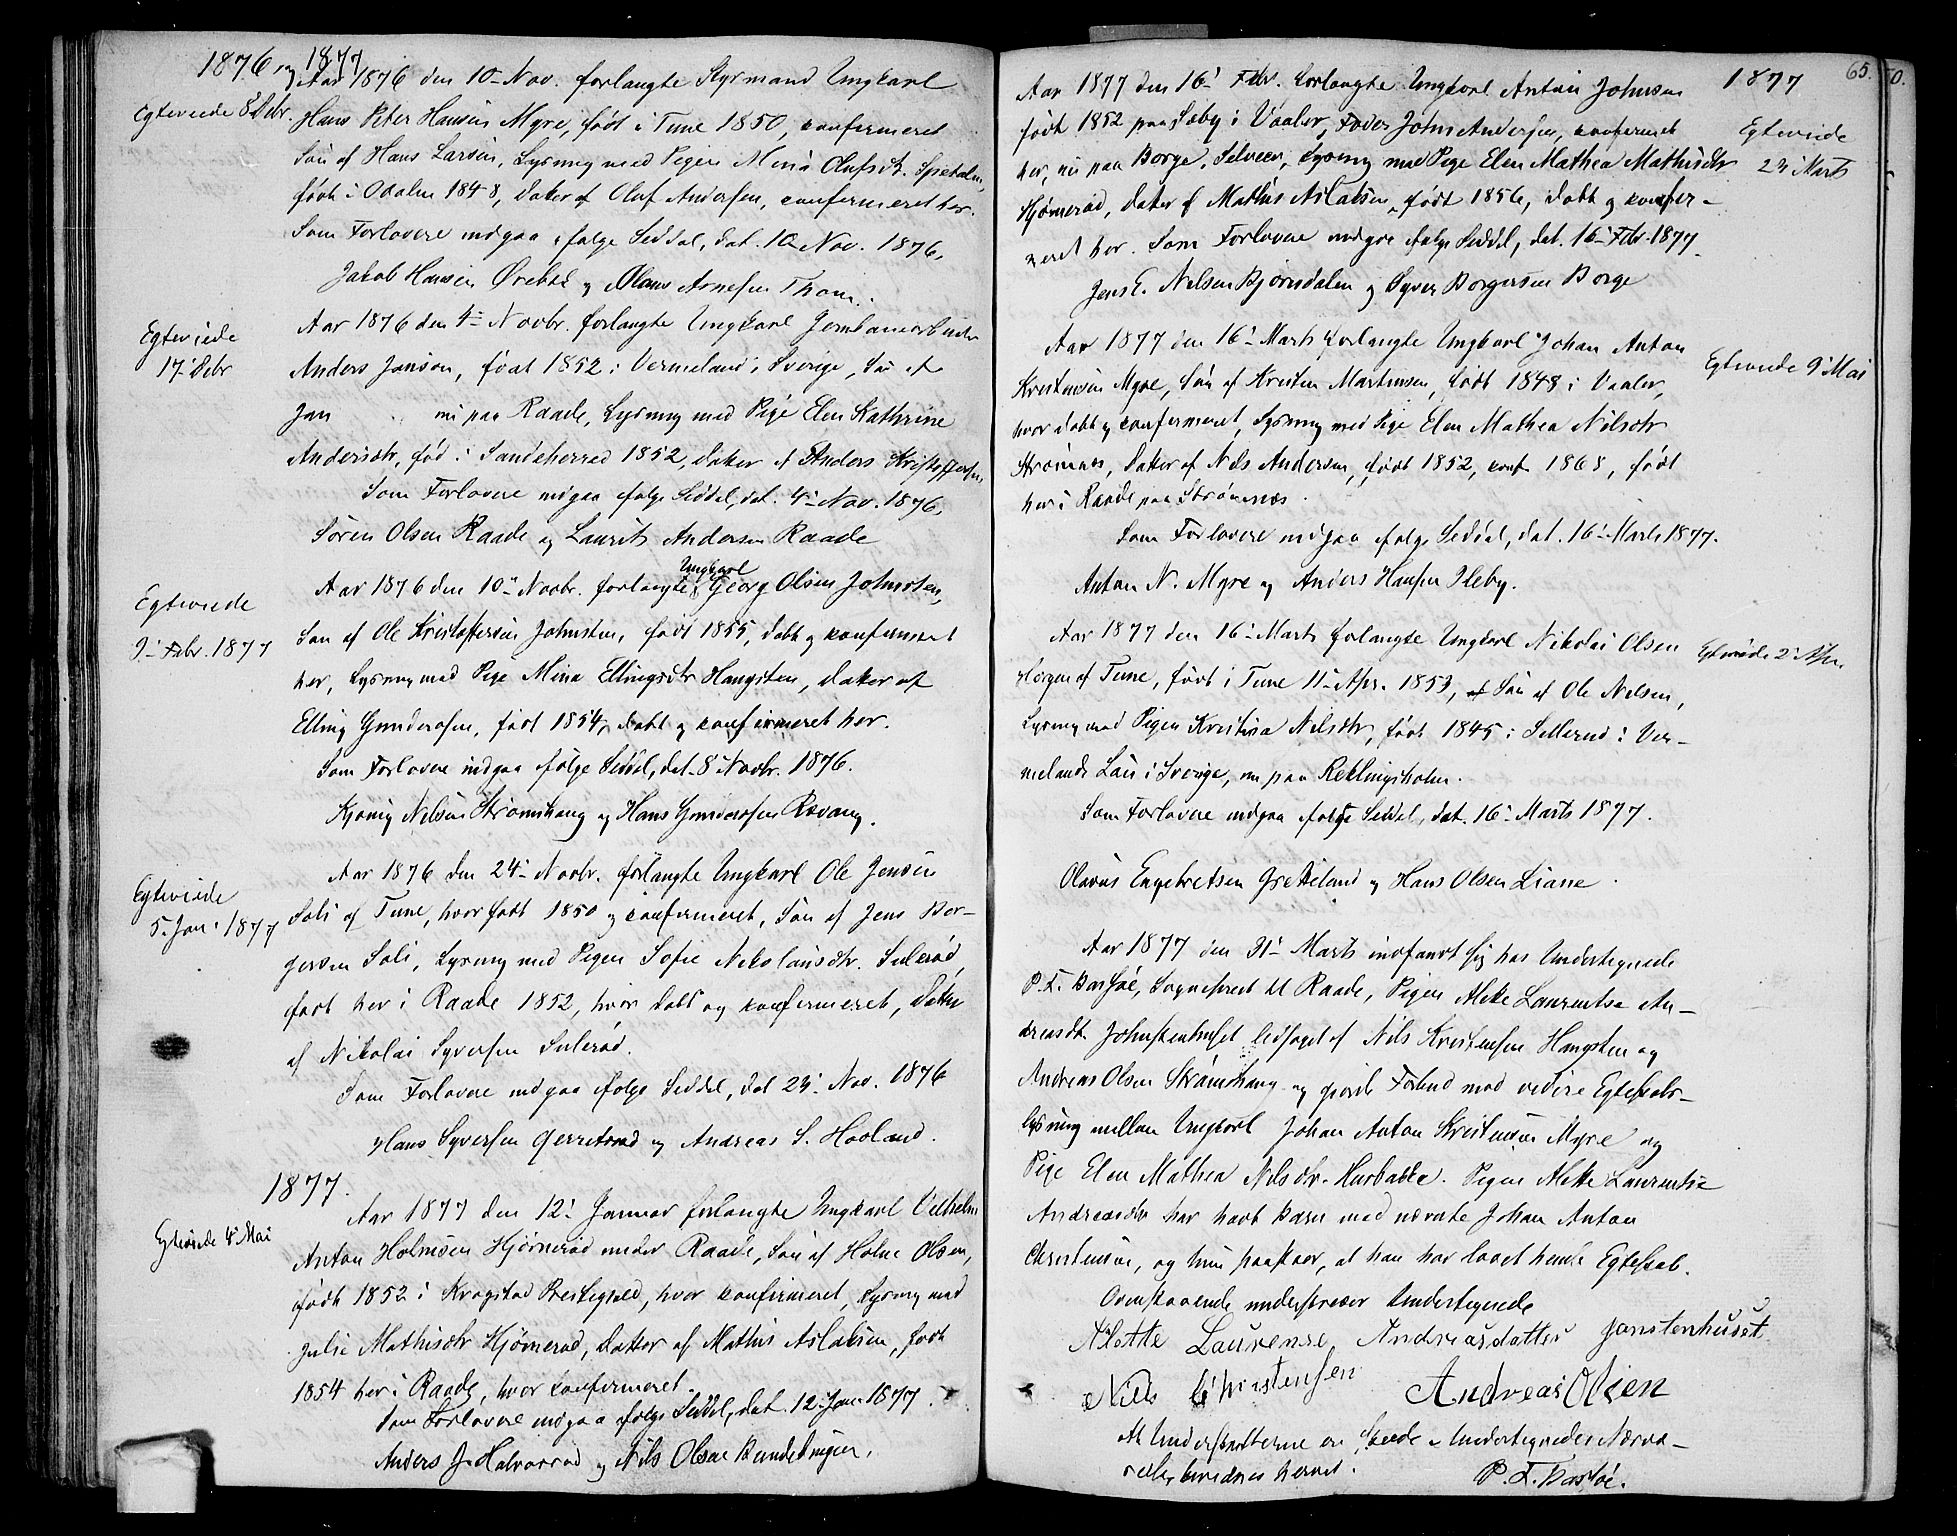 1876 og 1877
Egteviede 8 Debr.
Aar 1876 den 10 Nov. forlangte Styrmand Ungkarl
Hans Peter Hansen Myre, født i Tune 1850, confirmeret
Søn af Hans Larsen, Lysning med Pigen Mina Olafsdtr. Spetalen,
født i Odalen 1848, Datter af Oluf Andersen, confirmeret her.
Som Forlovere indgaa ifølge Seddel, dat. 10 Nov. 1876,
Jakob Hansen Ørebæk og Olaus Arnesen Thom.
Egteviede
17 Debr
Aar 1876 den 4 Novbr. forlangte Ungkarl Jernbanearbeider
Anders Janson, født 1852 i Vermeland i Sverige, Søn af
Jan nu paa Raade, Lysning med Pige Elen Kathrine
Andersdtr, fød i Sandeherred 1852, Datter af Anders Kristoffersen
Som Forlovere indgaa ifølge Seddel, dat. 4 Nov. 1876,
Søren Olsen Raade og Laurits Andersen Raade
Egteviede
9 Febr. 1877
Ungkarl
Aar 1876 den 10 Novbr. forlangte Georg Olsen Johnsten,
Søn af Ole Kristoffersen Johnsten, født 1855, døbt og konfirmeret
her, Lysning med Pige Mina Ellingsdtr Haugsten, Datter af
Elling Gundersen, født 1854, døbt og confirmeret her.
Som Forlovere indgaa ifølge Seddel, dat. 8 Novbr. 1876.
Kjønig Nilsen Strømshaug og Hans Gundersen Rævaug.
Egteviede
5 Jan. 1877
Aar 1876 den 24 Novbr. forlangte Ungkarl Ole Jensen
Soli af Tune, hvor født 1850 og confirmeret, Søn af Jens Bor-
gersen Soli, Lysning med Pigen Sofie Nikolaisdtr. Sulerød,
født her i Raade 1852, hvor døbt og confirmeret, Datter
af Nikolai Syversen Sulerød.
Som Forlovere indgaa ifølge Seddel, dat 23 Nov. 1876
Hans Syversen Gerretsrød og Andreas S. Haaland.
1877.
Egteviede 4 Mai
Aar 1877 den 12 Januar forlangte Ungkarl Vilhelm
Anton Holmsen Hjørnerød under Raade, Søn af Holm Olsen,
født 1852 i Kragstad Prestegjeld, hvor confirmeret, Lysning med
Julie Mathisdtr Hjørnerød, Datter af Mathis Aslaksen, født
1854 her i Raade, hvor confirmeret.
Som Forlovere indgaa ifølge Seddel, dat. 12 Jan. 1877.
Anders J. Halvorsrød og Nils Olsen
65.
1877
Egteviede
23 Marts
Aar 1877 den 16 Febr. forlangte Ungkarl Anton Johnsen
født 1852 paa Sæby i Vaaler, Fader John Andersen, confirmeret
her, nu paa Borge, Selveier, Lysning med Pige Elen Mathea Mathisdtr
Hjørnerød, Datter af Mathis Aslaksen, født 1856, døbt og confir-
meret her. Som Forlovere indgaa ifølge Seddel, dat. 16 Febr. 1877.
Jens E. Nilsen Bjørnsdalen og Syver Borgersen Borge
Egteviede 9 Mai
Aar 1877 den 16 Marts forlangte Ungkarl Johan Anton
Kristensen Myre, Søn af Kristen Martinsen, født 1848 i Vaaler,
hvor døbt og confirmeret, Lysning med Pige Elen Mathea Nilsdtr
Strømnæs, Datter af Nils Andersen, født 1852, conf. 1868, født
her i Raade paa Strømnæs.
Som Forlovere indgaa ifølge Seddel, dat. 16 Marts 1877.
Anton N. Myre og Anders Hansen Ileby.
Egteviede 2 Apr.
Aar 1877 den 16 Marts forlangte Ungkarl Nikolai Olsen
Hogen af Tune, født i Tune 11 Apr. 1853, Søn af Ole Nilsen,
Lysning med Pigen Kristina Nilsdtr, født 1845 i Sillerud i Ver-
melands Län i Sverige, nu paa Reklingsholm.
Som Forlovere indgaa ifølge Seddel, dat. 16 Marts 1877.
Olavus Engebretsen Grekeland og Hans Olsen Liane.
Aar 1877 den 31 Marts indfandt sig hos Undertegnede
P. L. Bassøe, Sognepræst til Raade, Pigen Alette Laurentse An-
dreasdt. Johnstenhuset ledsaget af Nils Kristensen Haugsten og
Andreas Olsen Strømshaug og gjorde Forbud mod videre Egteskabs-
lysning mellem Ungkarl Johan Anton Kristensen Myre og
Pige Elen Mathea Nilsdtr. Husbakke. Pigen Alette Laurentse
Andreasdtr har havt Barn med nævnte Johan Anton
Christensen, og hun paastaaer, at han har lovet hende Egteskab.
Ovenstaaende underskriver Undertegnede
Alette Laurense Andreasdatter Jonstenhuset
Niels Christensen Andreas Olsen
At Underskrifterne ere skeede i Undertegnedes Nærvæ-
relse bevidnes herved. P. L. Bassøe.